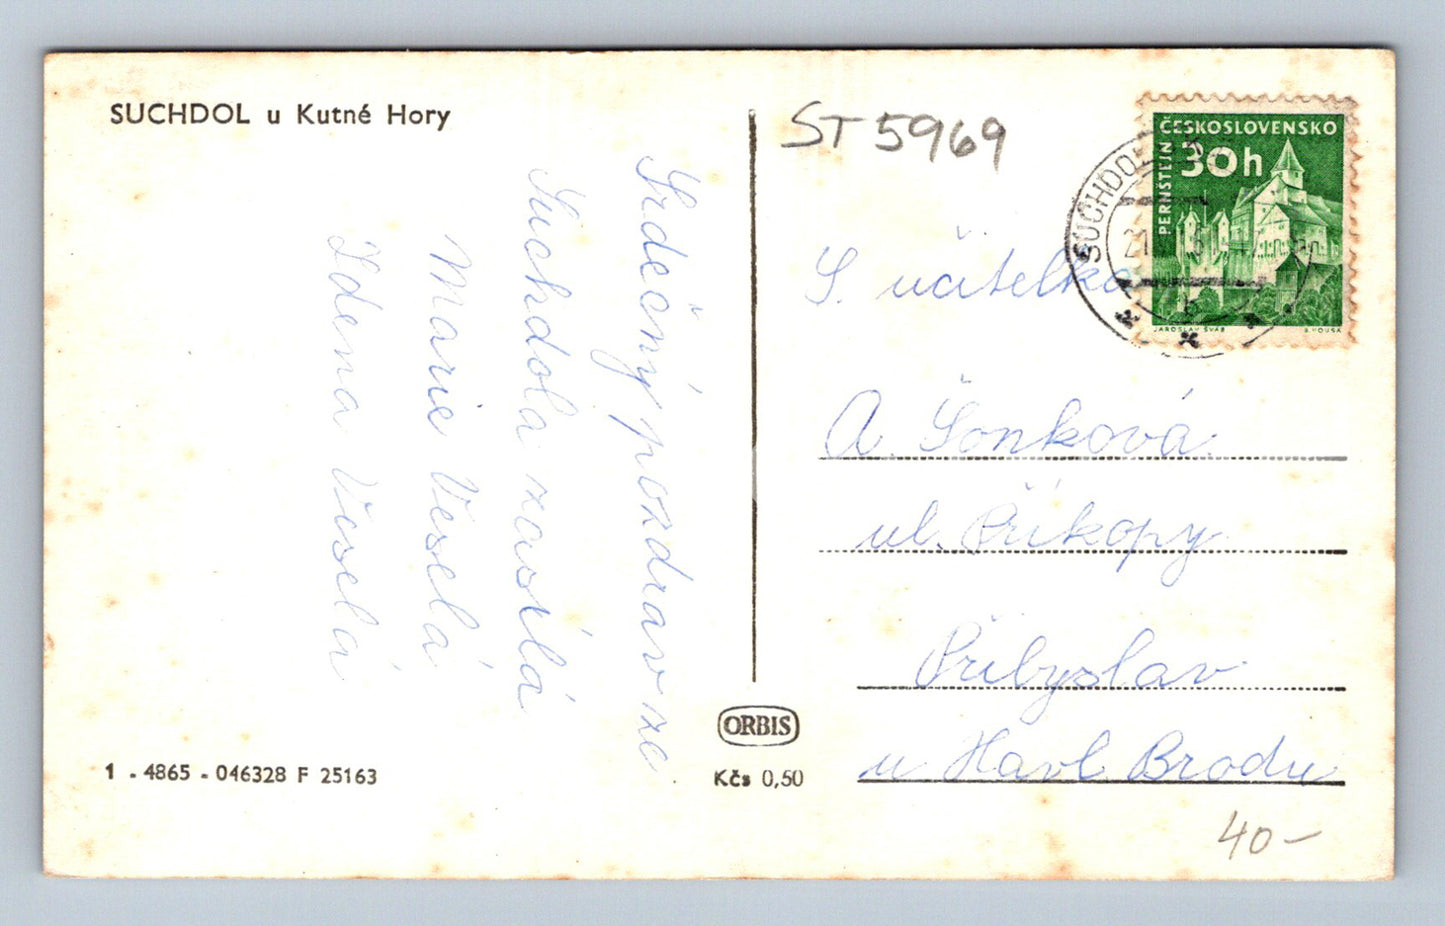 SUCHDOL u Kutné Hory
Srdečný pozdrav ze
Suchdola zasílá
Marie Veselá
Zdena Veselá
1 - 4865 - 046328 F 25163
ORBIS
Kčs 0,50
ST 5969
ČESKOSLOVENSKO
30h
PERNŠTEJN
JAROSLAV ŠVÁB
SUCHDOL
21
S. učitelka
A. Šonková
ul. Příkopy
Přibyslav
u Havl. Brodu
40-